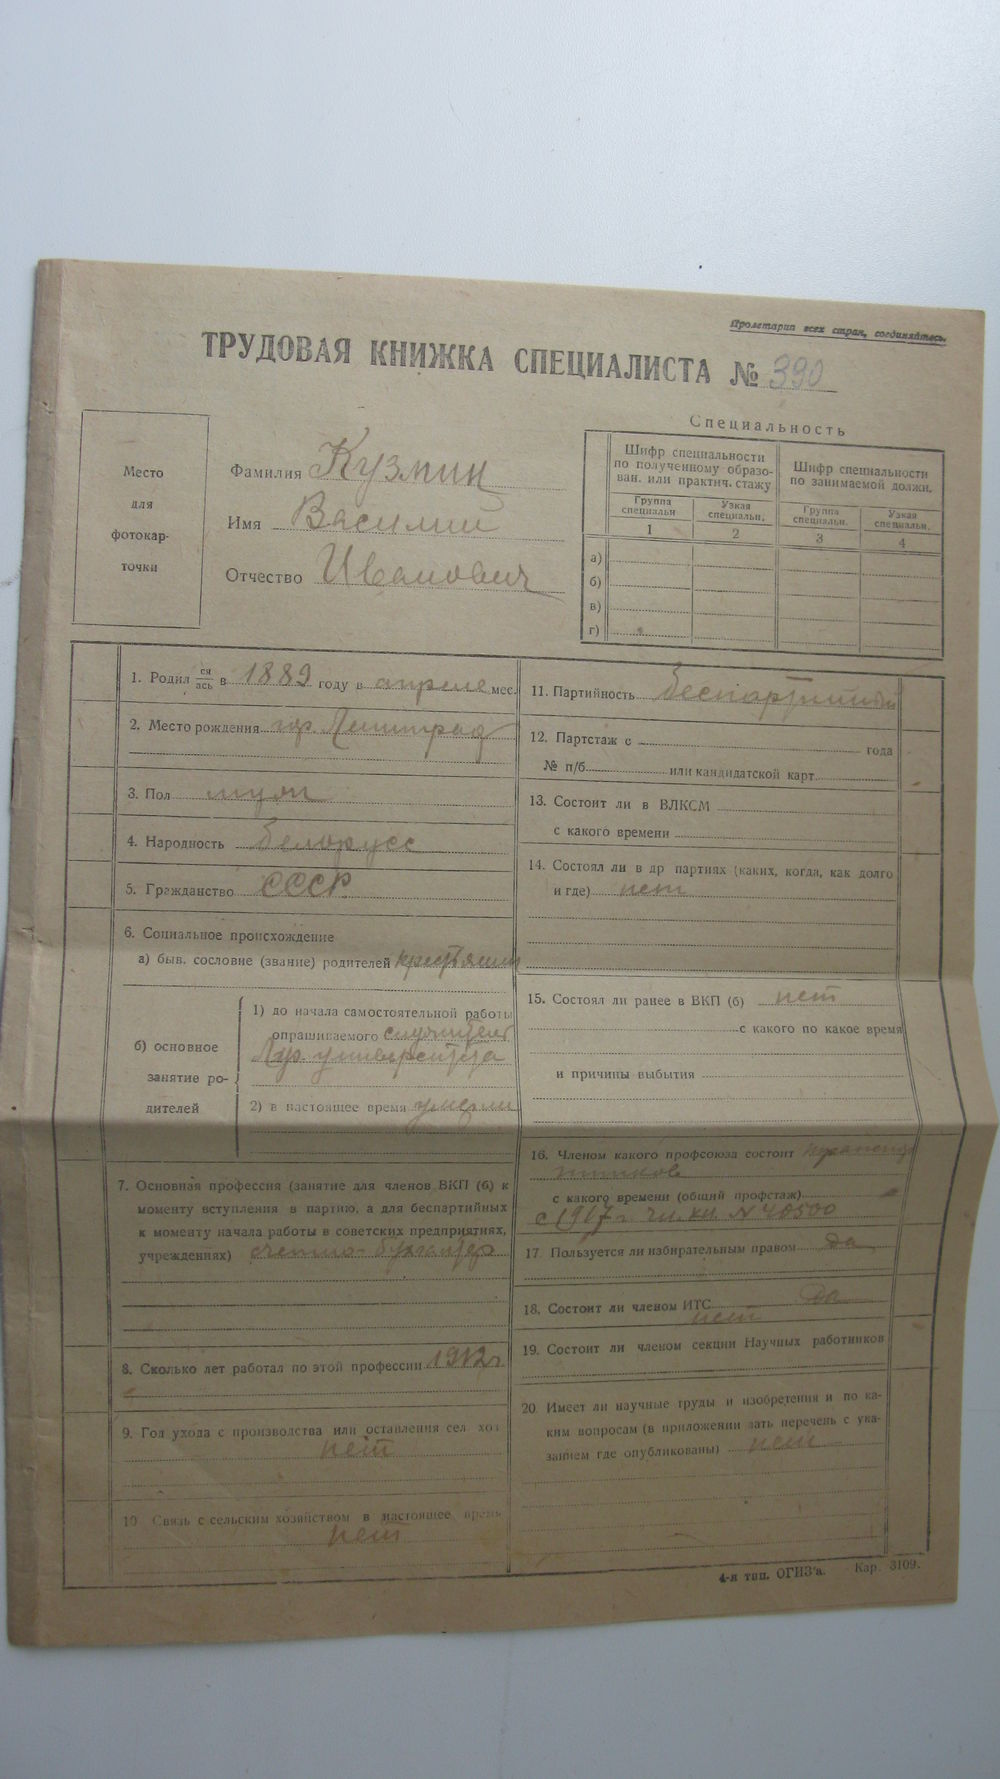 Пролетарии всех стран, соединяйтесь.
ТРУДОВАЯ КНИЖКА СПЕЦИАЛИСТА № 390
Место
для
фотокар-
точки
Фамилия Кузмин
Имя Василий
Отчество Иванович
Специальность
Шифр специальности
по полученному образо-
ван. или практич. стажу
Шифр специальности
по занимаемой должн.
Группа
специальн
Узкая
специальн.
Группа
специальн.
Узкая
специальн.
1 2 3 4
а)
б)
в)
г)
1. Родил ся ась в 1889 году в апреле мес.
2. Место рождения гор. Ленинград
3. Пол муж
4. Народность белорусс
5. Гражданство СССР
6. Социальное происхождение
а) быв. сословие (звание) родителей крестьяне
б) основное
занятие ро-
дителей
1) до начала самостоятельной работы
опрашиваемого
университета
2) в настоящее время умерли
7. Основная профессия (занятие для членов ВКП (б) к
моменту вступления в партию, а для беспартийных
к моменту начала работы в советских предприятиях,
учреждениях) счетно-бухгалтер
8. Сколько лет работал по этой профессии 1912 г
9. Год ухода с производства или оставления сел хоз
нет
10 Связь с сельским хозяйством в настоящее время
нет
11. Партийность беспартийный
12. Партстаж с года
№ п/б или кандидатской карт.
13. Состоит ли в ВЛКСМ
с какого времени
14. Состоял ли в др партиях (каких, когда, как долго
и где) нет
15. Состоял ли ранее в ВКП (б) нет
с какого по какое время
и причины выбытия
16. Членом какого профсоюза состоит
с какого времени (общий профстаж)
с 1917 г. чл. кн. № 40500
17. Пользуется ли избирательным правом да
18. Состоит ли членом ИТС да
нет
19. Состоит ли членом секции Научных работников
20 Имеет ли научные труды и изобретения и по ка-
ким вопросам (в приложении дать перечень с ука-
занием где опубликованы) нет
4-я тип. ОГИЗ'а. Кар. 3109.